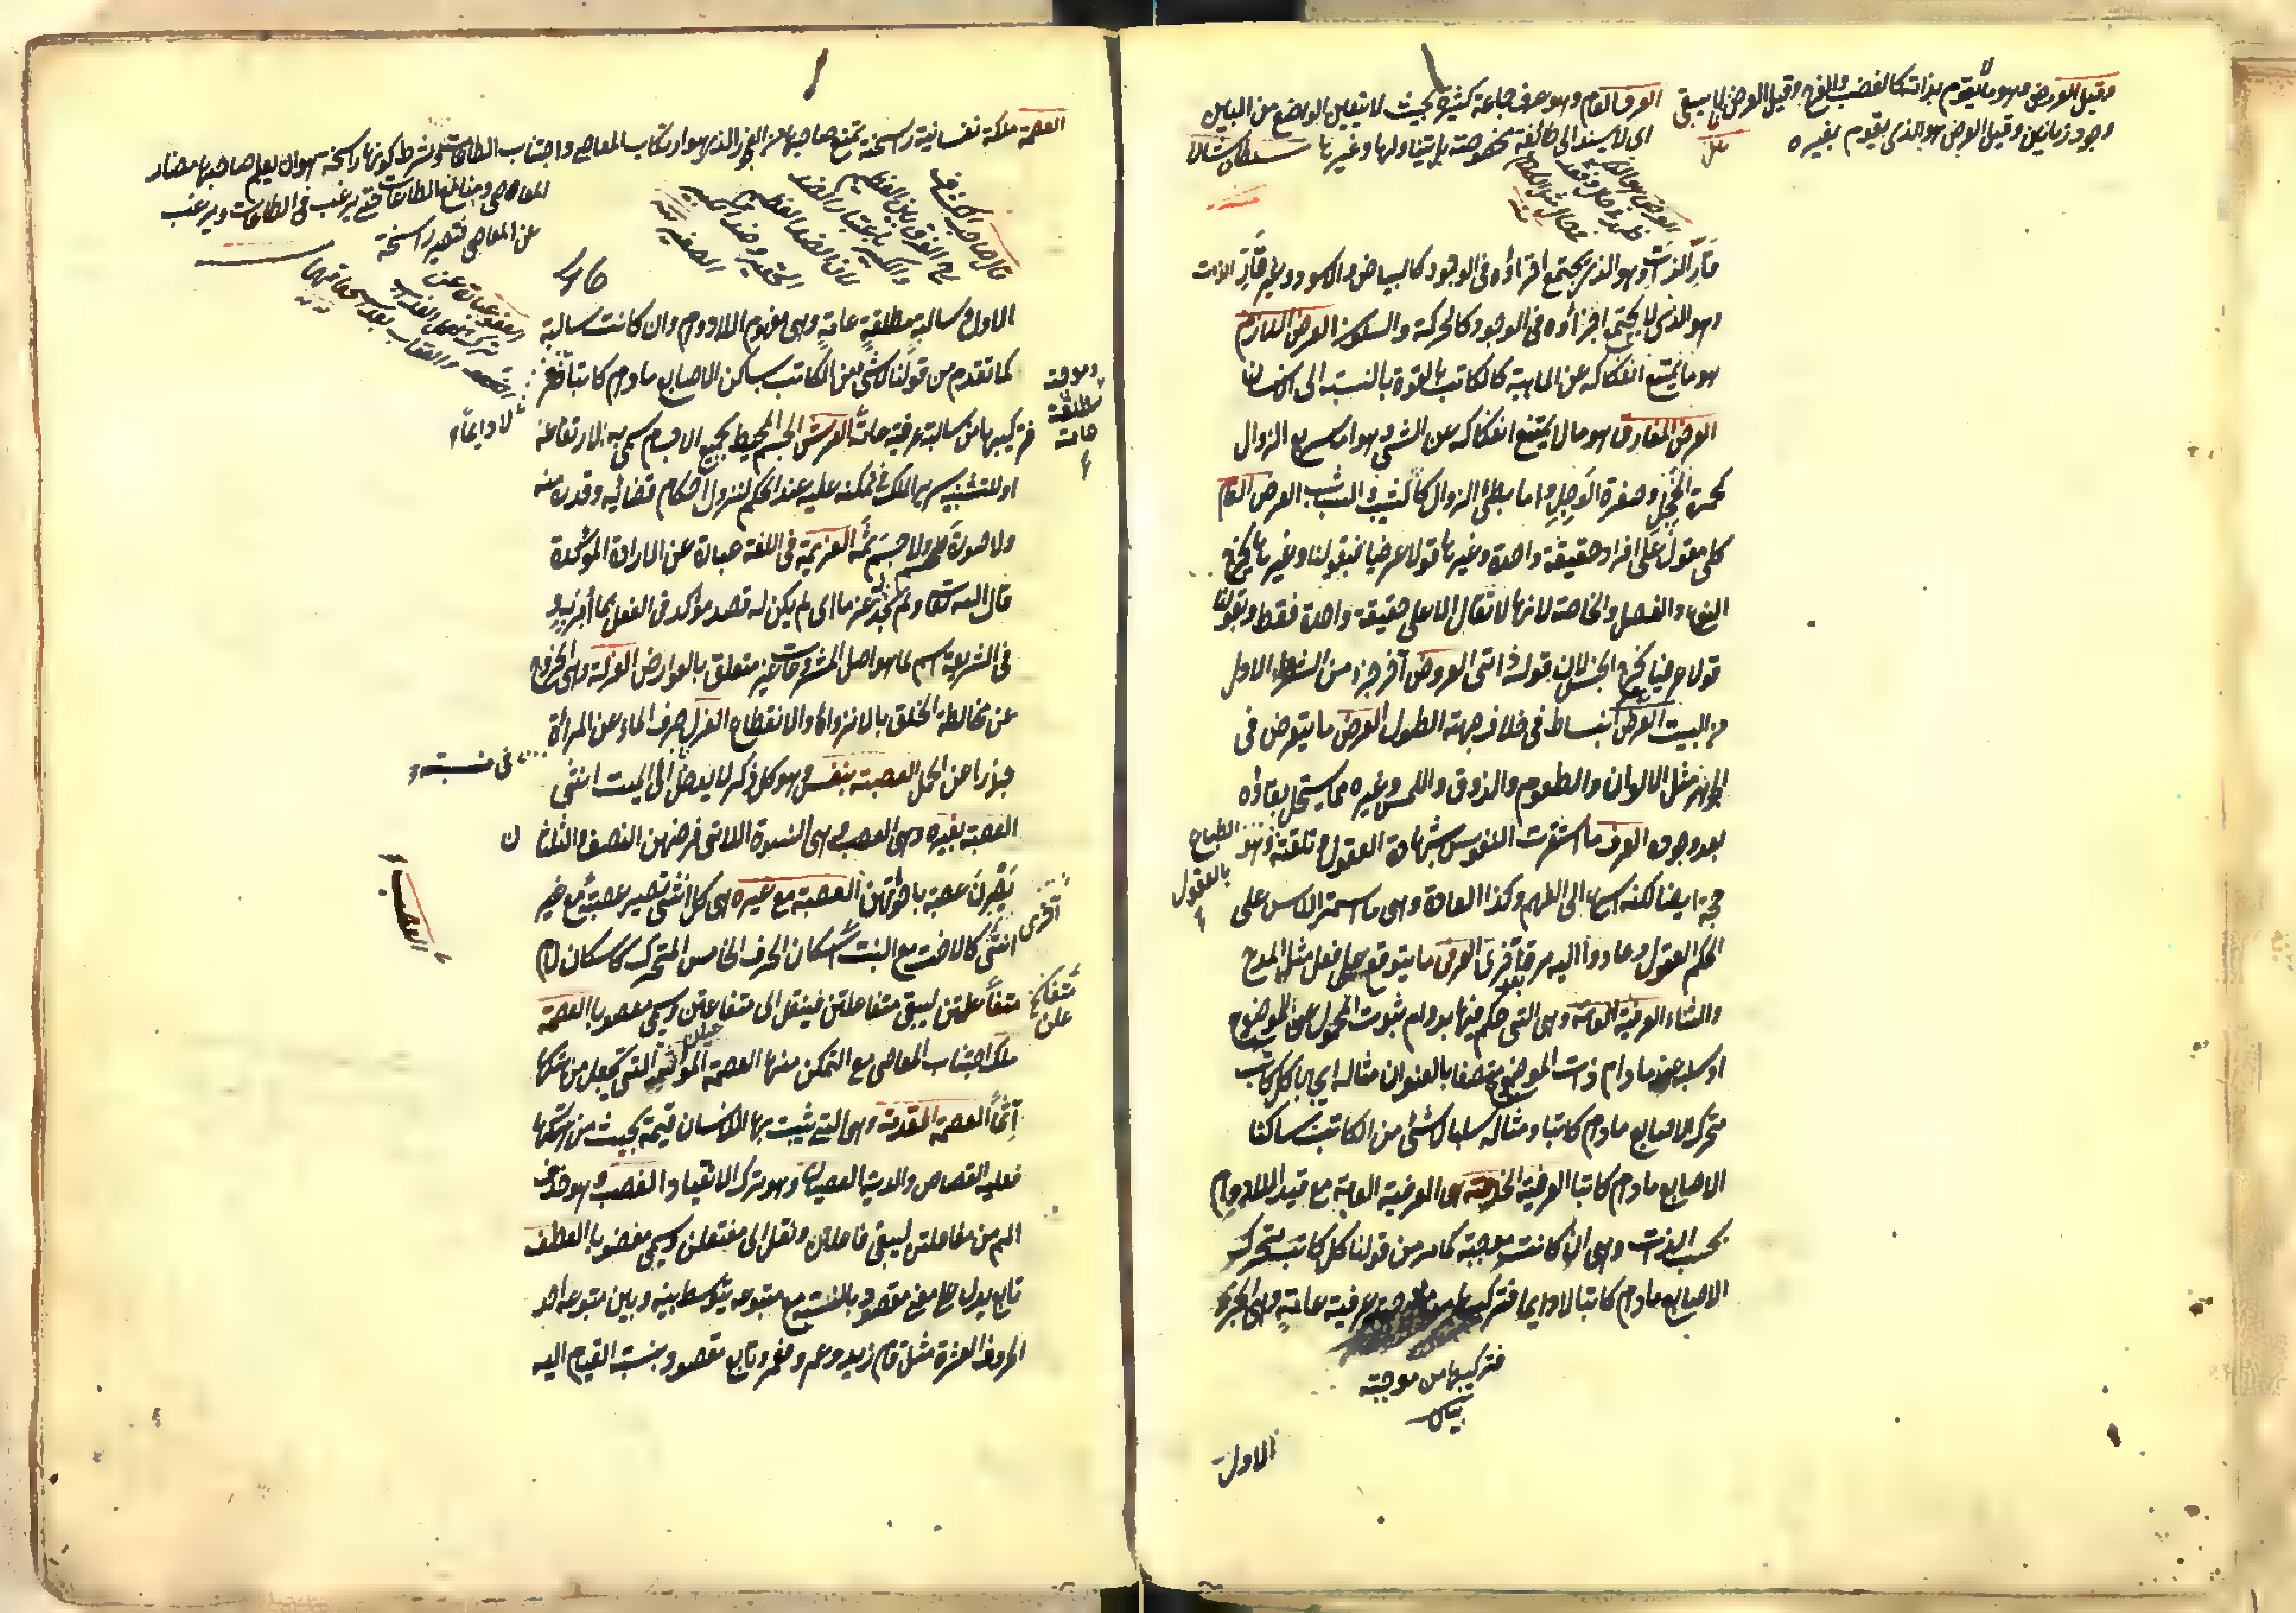 وقيل العرض وهو ما لا يقوم بذاته كالغضب والفرح وقيل العرض لا يبقى
وجود زمانين وقيل العرض هو الذي يقوم بغيره
العرف العام وهو عرف جماعة كثيرة بحيث لا يتعين الواضع من البين
اى لا يسند الى طائفة مخصوصة بل يتناولها وغيرها
قار الذات وهو الذى يجتمع اجزاؤه فى الوجود كالبياض والاسود وغير قار الذات
وهو الذى لا يجتمع اجزاؤه فى الوجود كالحركة والسكون العرض اللازم
هو ما يمتنع انفكاكه عن الماهية كالكاتب بالقوة بالنسبة الى الانسان
العرض المفارق هو ما لا يمتنع انفكاكه عن الشئ وهو اما سريع الزوال
كحمرة الخجل وصفرة الوجل واما بطئ الزوال كالشيب والشباب العرض العام
كلى مقول على افراد حقيقة واحدة وغيرها قولا عرضيا فبقولنا وغيرها يخرج
النوع والفصل والخاصة لانها لا تقال الا على حقيقة واحدة فقط وبقولنا
قولا عرضيا يخرج الجنس لان قوله ذاتى العروض آخر جزء من الشطر الاول
من البيت العرض انبساط فى خلاف جهة الطول العرض ما يتعرض فى
الجوهر مثل الالوان والطعوم والذوق واللمس وغيره مما يستحيل بقاؤه
بعد وجوده العرف ما استقرت النفوس بشهادة العقول وتلقته وهو
الطبايع
بالقبول
حجة ايضا لكنه اسرع الى الفهم وكذا العادة وهى ما استمر الناس على
حكم العقول وعادوا اليه مرة بعد اخرى العرفى ما يتوقع على فعل مثل المدح
والثناء العرفية العامة وهى التى حكم فيها بدوام ثبوت المحمول على الموضوع
او سلبه عنه ما دام ذات الموضوع متصفا بالعنوان مثاله ايجابا كل كاتب
متحرك الاصابع ما دام كاتبا ومثاله سلبا لا شئ من الكاتب ساكنا
الاصابع ما دام كاتبا العرفية الخاصة هى العرفية العامة مع قيد اللادوام
بحسب الذات وهى ان كانت موجبة كما مر من قولنا كل كاتب متحرك
الاصابع ما دام كاتبا لا دايما فتركيبها من موجبة عرفية عامة وهى الجزء
فتركيبها من موجبة
الاول
العصمة ملكة نفسانية راسخة تمنع صاحبها من الفجور الذى هو ارتكاب المعاصى واجتناب الطاعات وشرط كونها راسخة هو ان يعلم صاحبها مضار
المعاصى ومنافع الطاعات حتى يرغب فى الطاعات ويرغب
عن المعاصى فتصير راسخة
46
الاول وسالبة مطلقة عامة وهى مفهوم اللادوام وان كانت سالبة
كما تقدم من قولنا لا شئ من الكاتب بساكن الاصابع ما دام كاتبا
لا دايما
فتركيبها من سالبة عرفية عامة العرش الجسم المحيط بجميع الاجسام سمى به لارتفاعه
وموجبة
مطلقة
عامة
او للتشبيه بسرير الملك فى تمكنه عليه عند الحكم لنزول احكام قضائه وقدره منه
ولا صورة ولا جسم ثمة العزيمة فى اللغة عبارة عن الارادة المؤكدة
قال الله تعالى ولم نجد له عزما اى لم يكن له قصد مؤكد فى الفعل بما امر به و
فى الشريعة اسم لما هو اصل المشروعات غير متعلق بالعوارض العزلة وهى الخروج
عن مخالطة الخلق بالانزواء والانقطاع العزل صرف الماء عن المرأة
حذرا عن الحمل العصبة بنفسه وهو كل ذكر لا يدخل فى نسبته الى الميت انثى
العصبة بغيره وهى النسوة اللاتى فرضهن النصف والثلثان
يصرن عصبة باخوتهن العصبة مع غيره هى كل انثى تصير عصبة مع غير
انثى اخرى كالاخت مع البنت العصب اسكان الحرف الخامس المتحرك كاسكان لام
مفاعلتن ليبقى مفاعلتن فينقل الى مفاعيلن ويسمى معصوبا العصمة
ملكة اجتناب المعاصى مع التمكن منها العصمة المؤثمة التى تجعل من هتكها
آثما العصمة المقومة وهى التى يثبت بها للانسان قيمة بحيث من هتكها
فعليه القصاص والدية العصيان وهو ترك الانقياد الغصب هو حذف
الميم من مفاعلتن ليبقى فاعلتن وتقل الى مفتعلن ويسمى معضوبا العطف
تابع يدل على معنى مقصود بالنسبة مع متبوعه يتوسط بينه وبين متبوعه احد
الحروف العشرة مثل قام زيد وعمرو فعمرو تابع مقصود بنسبة القيام اليه